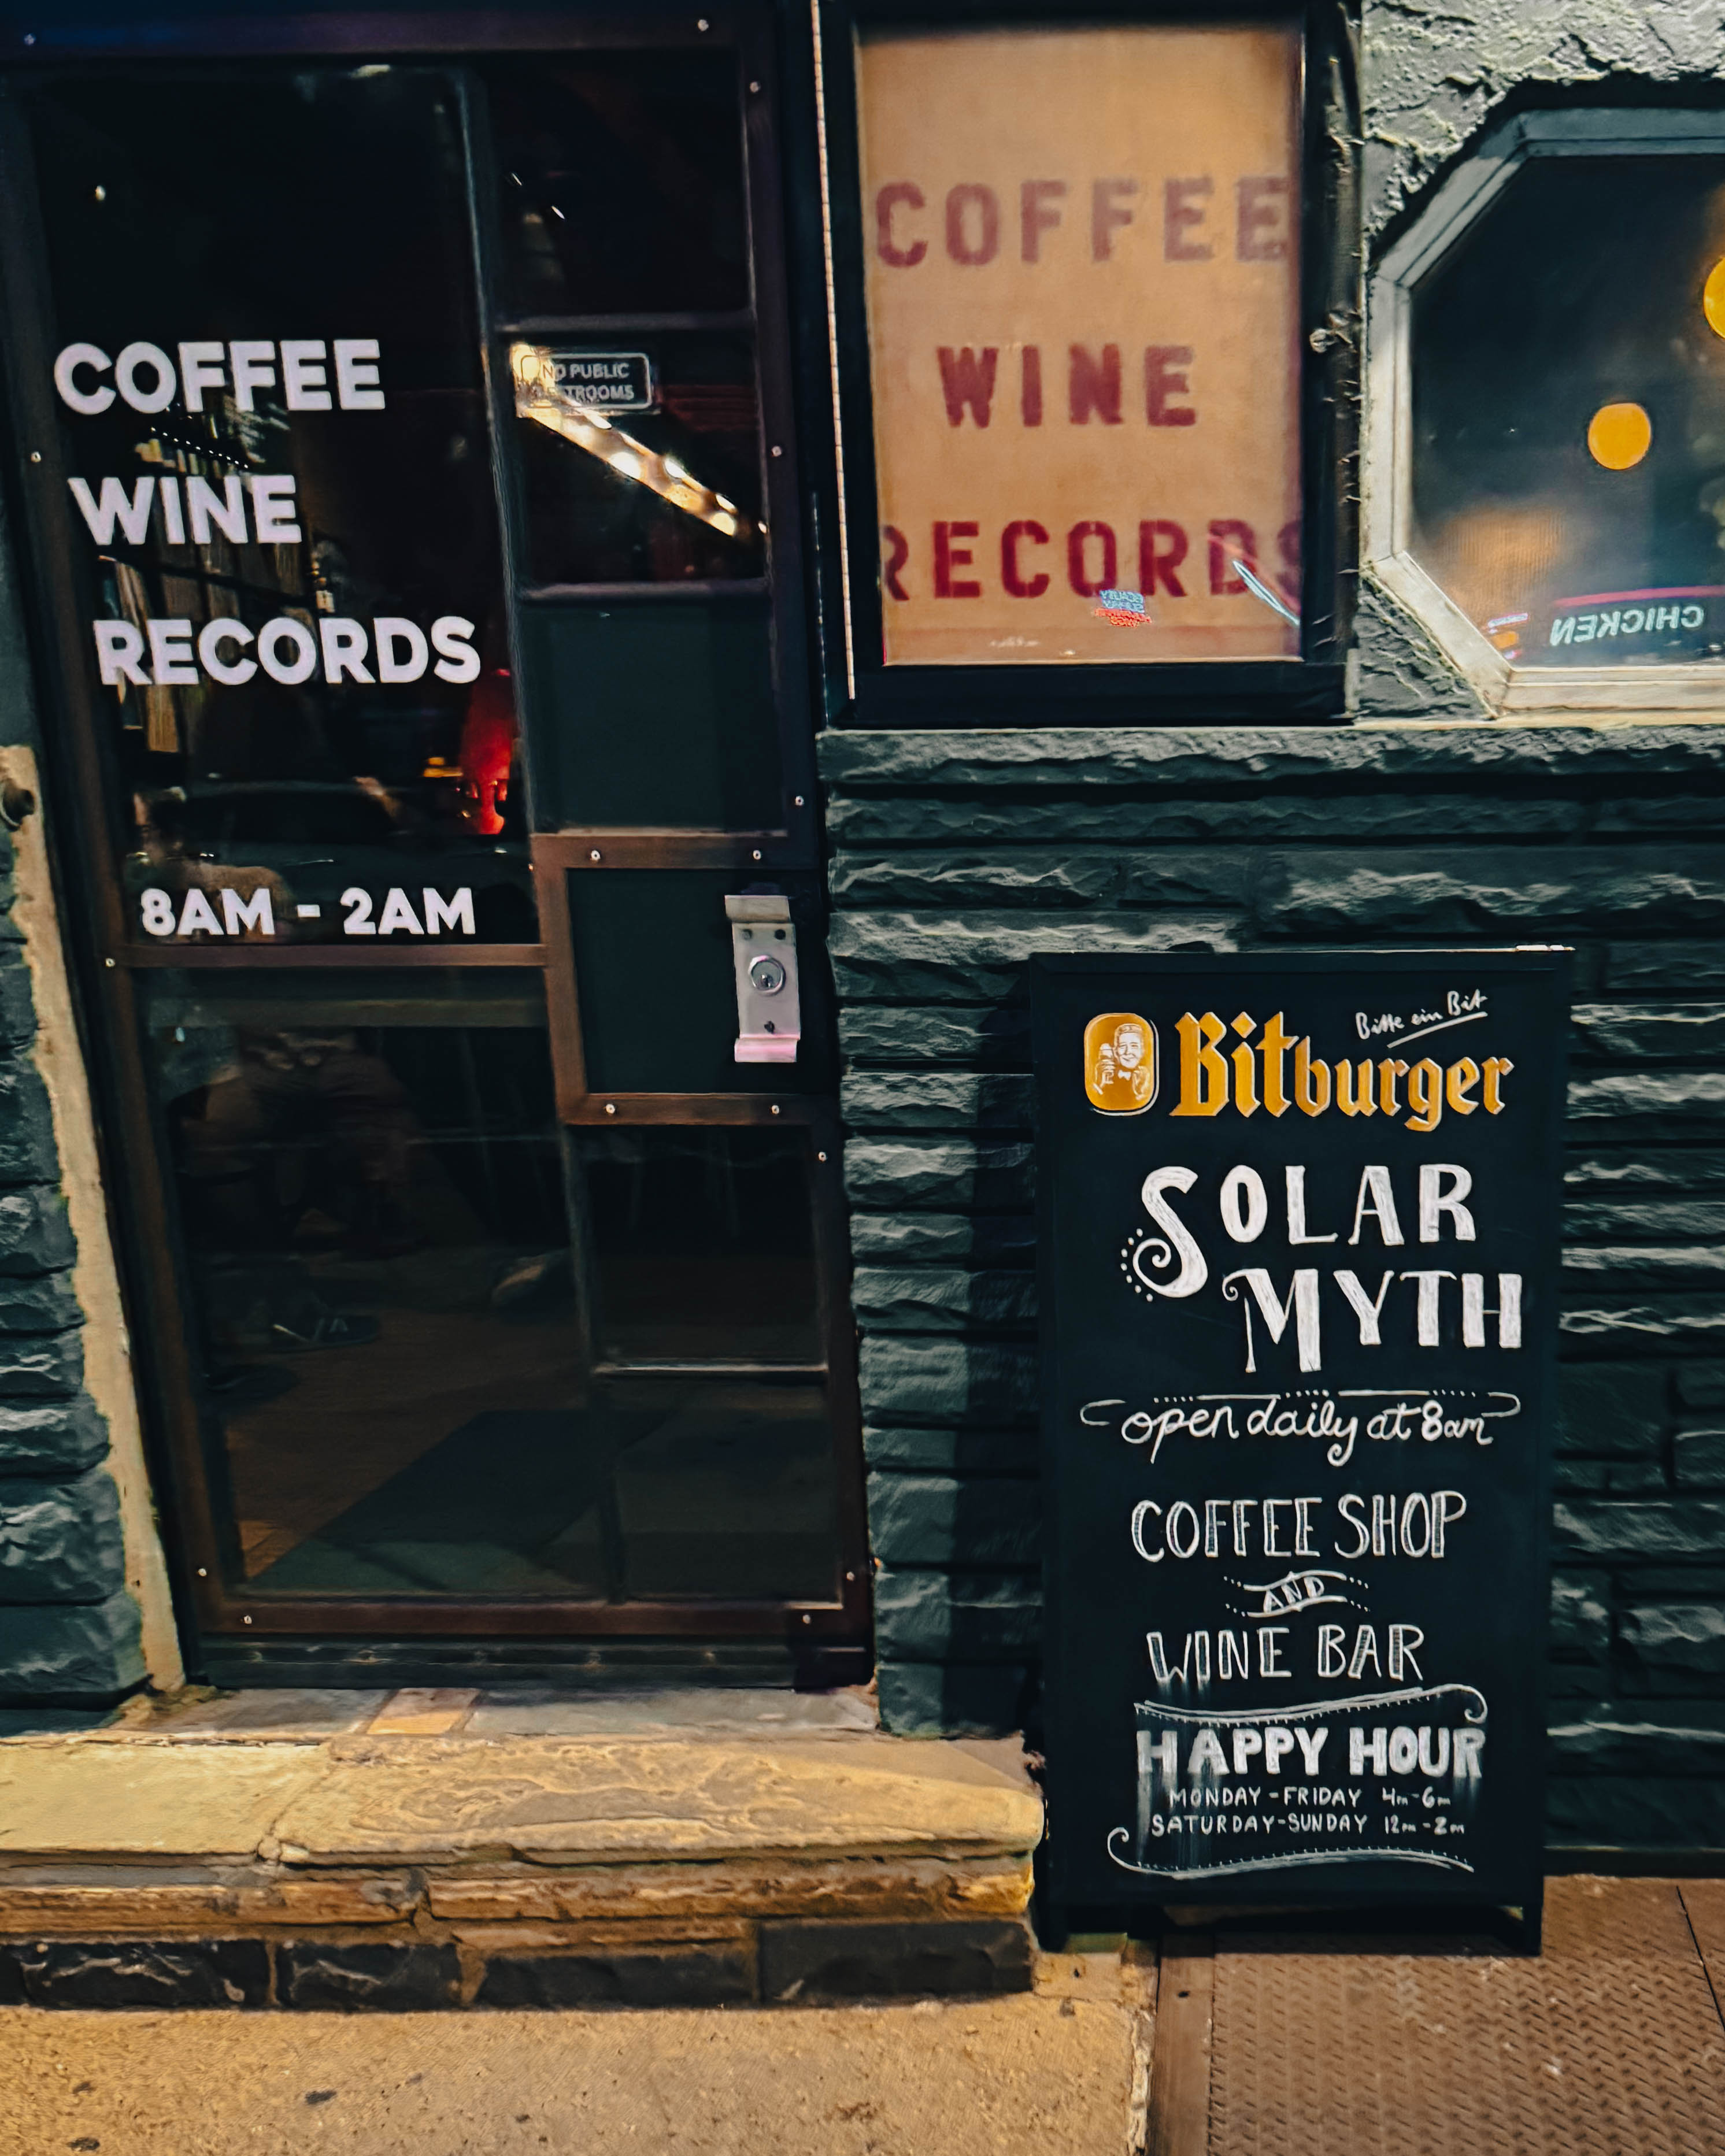 COFFEE
WINE
RECORDS
8AM - 2AM
NO PUBLIC
COFFEE
WINE
RECORDS
CHICKEN
Bitte ein Bit
Bitburger
SOLAR
MYTH
open daily at 8am
COFFEE SHOP
AND
WINE BAR
HAPPY HOUR
MONDAY - FRIDAY 4pm - 6pm
SATURDAY - SUNDAY 12pm - 2pm